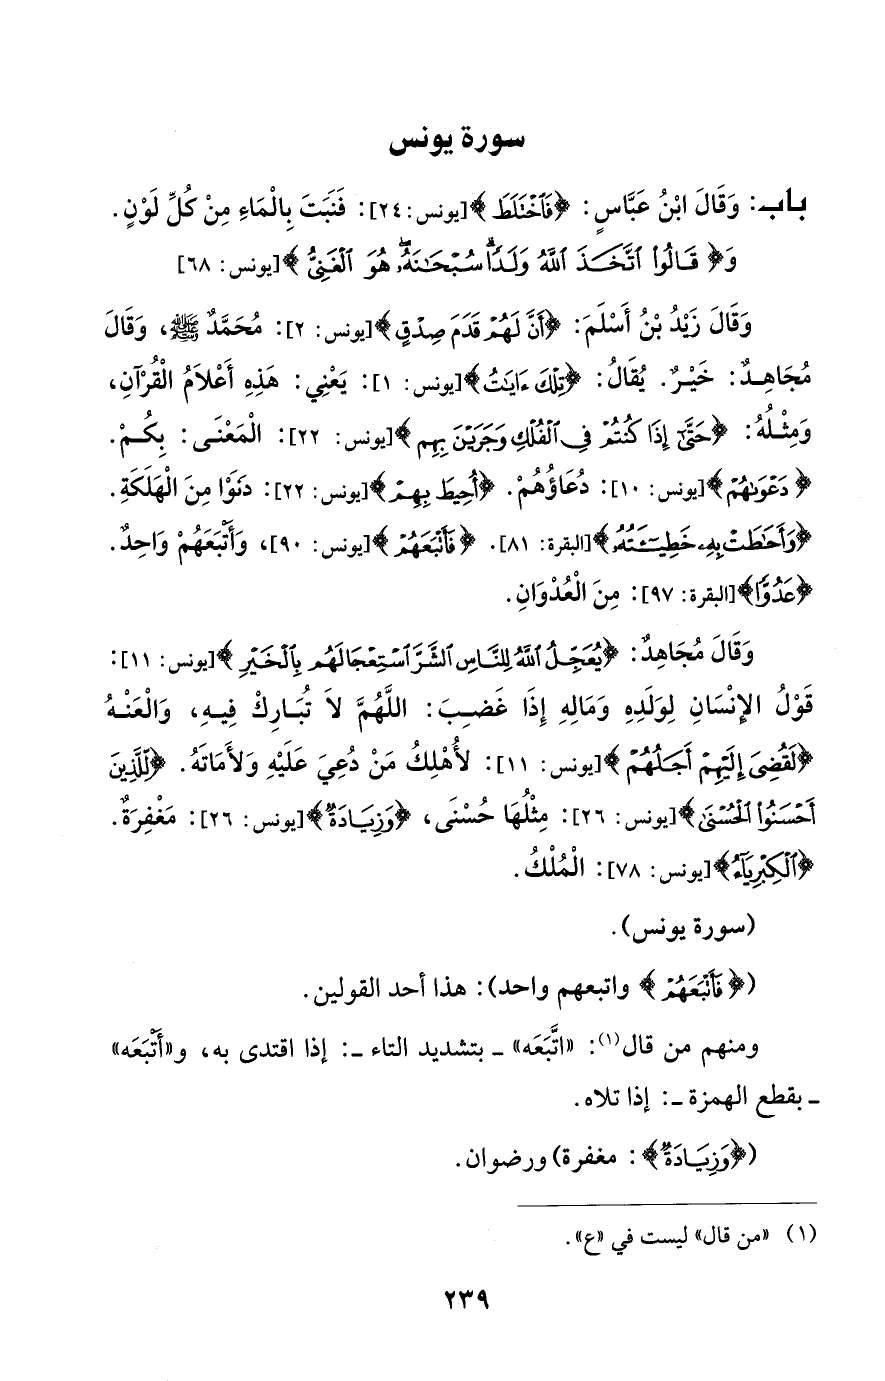 سورة يونس
باب: وَقَالَ ابْنُ عَبَّاسٍ: ﴿فَاخْتَلَطَ﴾[يونس: ٢٤]: فَنَبَتَ بِالْمَاءِ مِنْ كُلِّ لَوْنٍ.
وَ﴿قَالُوا اتَّخَذَ اللَّهُ وَلَدًا سُبْحَانَهُ هُوَ الْغَنِيُّ﴾[يونس: ٦٨]
وَقَالَ زَيْدُ بْنُ أَسْلَمَ: ﴿أَنَّ لَهُمْ قَدَمَ صِدْقٍ﴾[يونس: ٢]: مُحَمَّدٌ ﷺ، وَقَالَ
مُجَاهِدٌ: خَيْرٌ. يُقَالُ: ﴿تِلْكَ ءَايَاتُ﴾[يونس: ١]: يَعْنِي: هَذِهِ أَعْلَامُ الْقُرْآنِ،
وَمِثْلُهُ: ﴿حَتَّى إِذَا كُنتُمْ فِي الْفُلْكِ وَجَرَيْنَ بِهِم﴾[يونس: ٢٢]: الْمَعْنَى: بِكُمْ.
﴿دَعْوَاهُمْ﴾[يونس: ١٠]: دُعَاؤُهُمْ. ﴿أُحِيطَ بِهِمْ﴾[يونس: ٢٢]: دَنَوْا مِنَ الْهَلَكَةِ.
﴿وَأَحَاطَتْ بِهِ خَطِيئَتُهُ﴾[البقرة: ٨١]. ﴿فَأَتْبَعَهُمْ﴾[يونس: ٩٠]، وَأَتْبَعَهُمْ وَاحِدٌ.
﴿عَدُوًّا﴾[البقرة: ٩٧]: مِنَ الْعُدْوَانِ.
وَقَالَ مُجَاهِدٌ: ﴿يُعَجِّلُ اللَّهُ لِلنَّاسِ الشَّرَّ اسْتِعْجَالَهُم بِالْخَيْرِ﴾[يونس: ١١]:
قَوْلُ الإِنْسَانِ لِوَلَدِهِ وَمَالِهِ إِذَا غَضِبَ: اللَّهُمَّ لاَ تُبَارِكْ فِيهِ، وَالْعَنْهُ
﴿لَقُضِيَ إِلَيْهِمْ أَجَلُهُمْ﴾[يونس: ١١]: لأُهْلِكُ مَنْ دُعِيَ عَلَيْهِ وَلأَمَاتَهُ. ﴿لِّلَّذِينَ
أَحْسَنُوا الْحُسْنَى﴾[يونس: ٢٦]: مِثْلُهَا حُسْنَى، ﴿وَزِيَادَةٌ﴾[يونس: ٢٦]: مَغْفِرَةٌ.
﴿الْكِبْرِيَاءُ﴾[يونس: ٧٨]: الْمُلْكُ.
(سورة يونس).
(﴿فَأَتْبَعَهُمْ﴾ واتبعهم واحد): هذا أحد القولين.
ومنهم من قال(١): «اتَّبَعَه» ـ بتشديد التاء ـ: إذا اقتدى به، و«أَتْبَعَه»
ـ بقطع الهمزة ـ: إذا تلاه.
(﴿وَزِيَادَةٌ﴾: مغفرة) ورضوان.
(١) «من قال» ليست في «ع».
٢٣٩